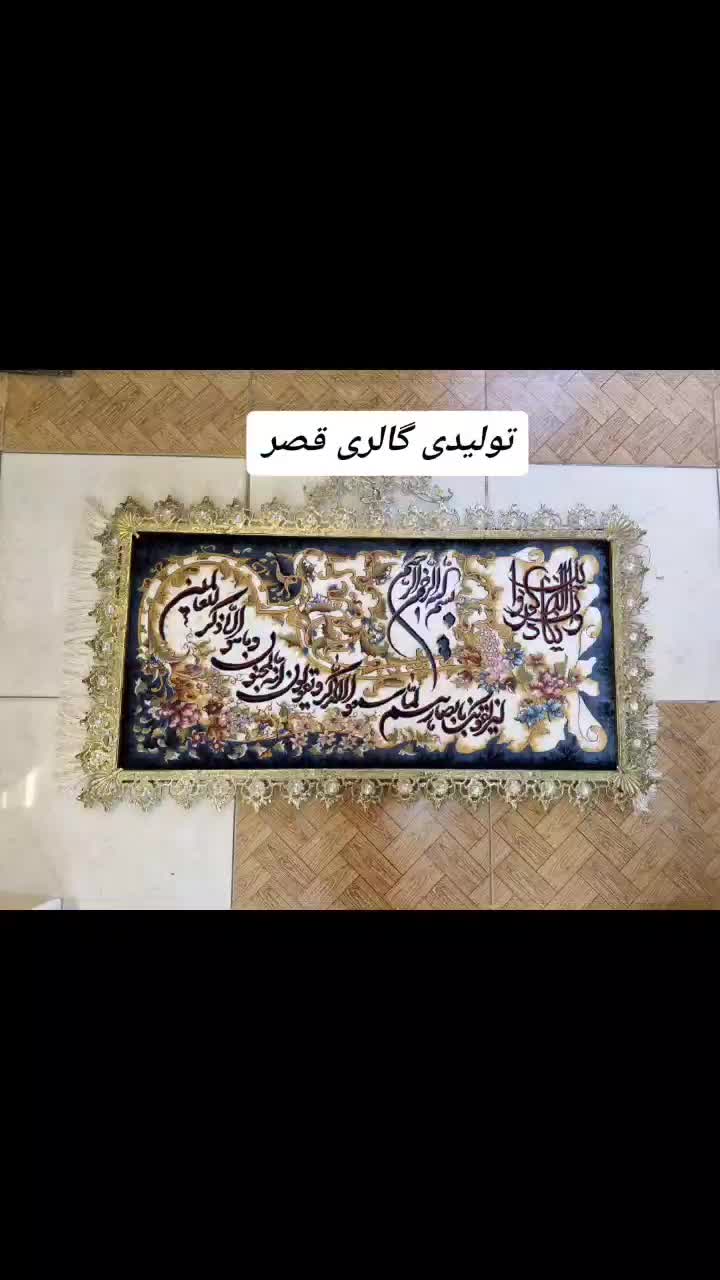 تولیدی گالری قصر
بسم الله الرحمن الرحیم
وان یکاد الذین کفروا
لیزلقونک بابصارهم لما سمعوا الذکر و یقولون انه لمجنون
و ما هو الا ذکر للعالمین